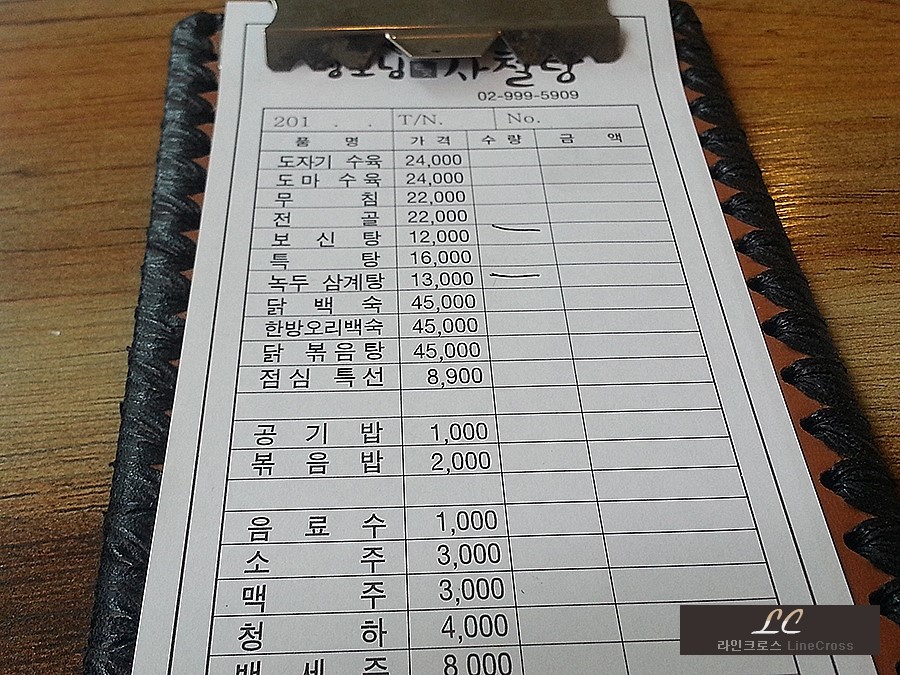 사철탕
02-999-5909
201 . . T/N. No.
품 명 가 격 수 량 금 액
도자기 수육 24,000
도마 수육 24,000
무 침 22,000
전 골 22,000
보 신 탕 12,000
특 탕 16,000
녹두 삼계탕 13,000
닭 백 숙 45,000
한방오리백숙 45,000
닭 볶음탕 45,000
점심 특선 8,900
공 기 밥 1,000
볶 음 밥 2,000
음 료 수 1,000
소 주 3,000
맥 주 3,000
청 하 4,000
백 세 주 8,000
LC
라인크로스 LineCross